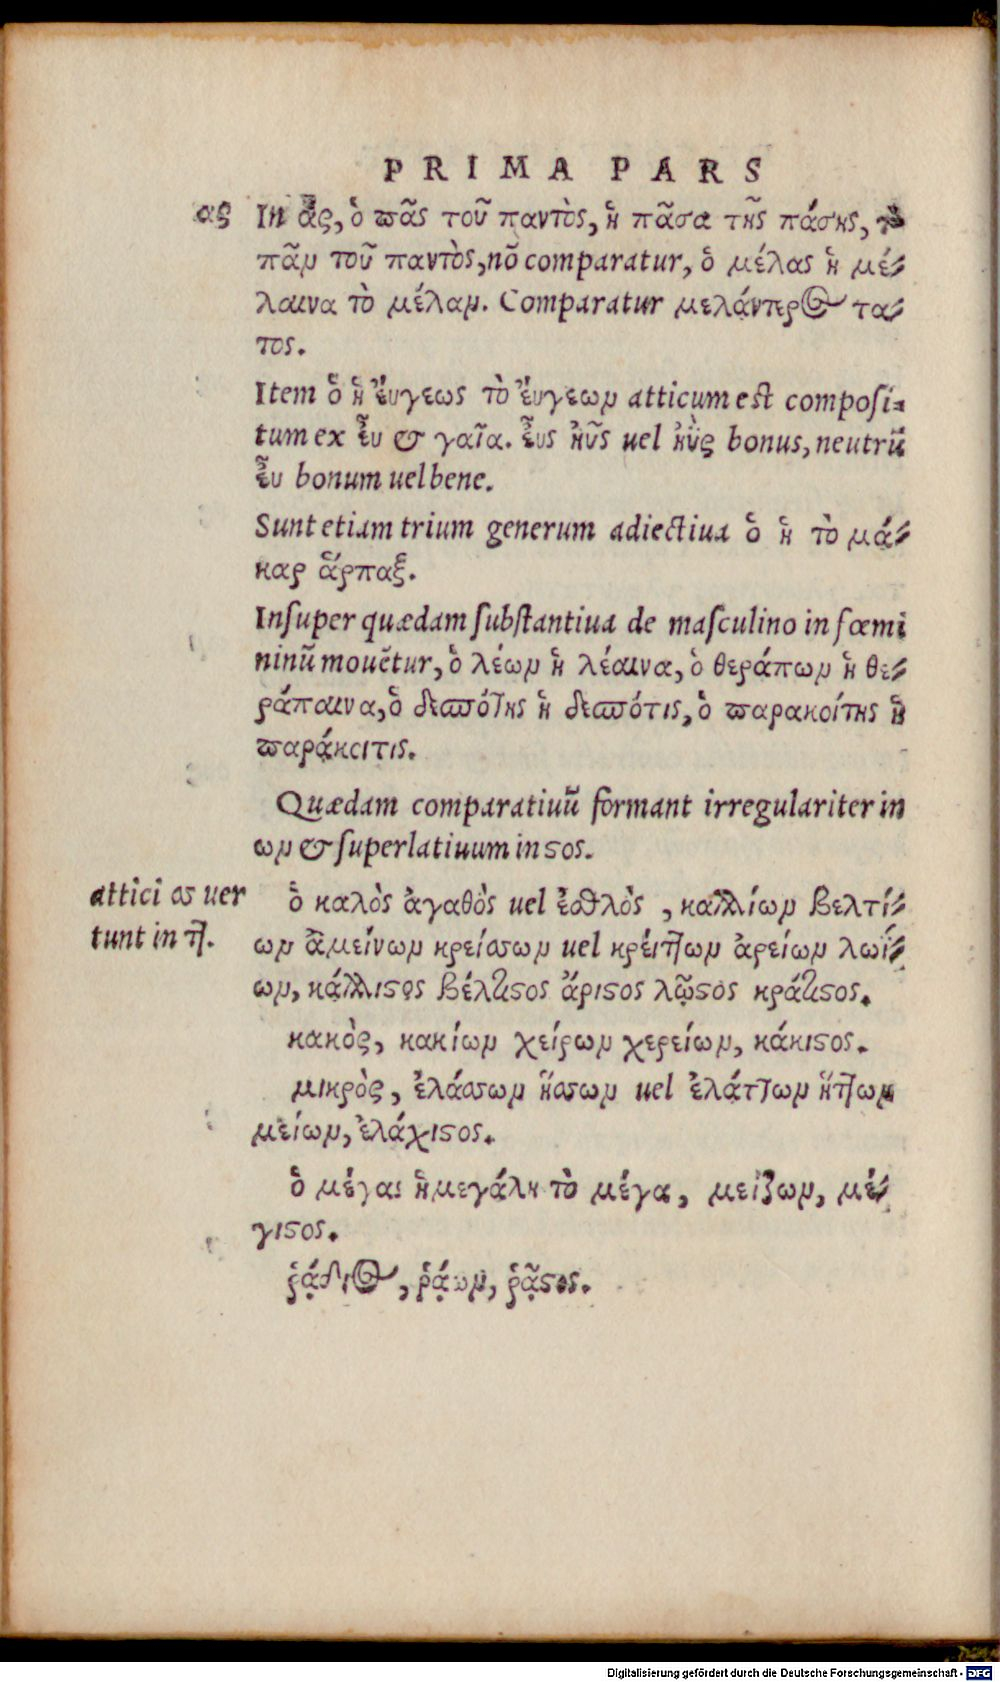 PRIMA PARS
ας In ᾶς, ὁ πᾶς τοῦ παντὸς, ἡ πᾶσα τῆς πάσης, τὸ
πᾶν τοῦ παντὸς, nō comparatur, ὁ μέλας ἡ μέ-
λαινα τὸ μέλαν. Comparatur μελάντερος τα-
τος.
Item ὁ ἡ ἔυγεως τὸ ἔυγεων atticum est composi-
tum ex ἔυ & γαῖα. ἔυς ἠῢς uel ἠῢς bonus, neutrū
ἔυ bonum uel bene.
Sunt etiam trium generum adiectiua ὁ ἡ τὸ μά-
καρ ἅρπαξ.
Insuper quædam substantiua de masculino in fœmi
ninū mouētur, ὁ λέων ἡ λέαινα, ὁ θεράπων ἡ θε-
ράπαινα, ὁ δεσπότης ἡ δεσπότις, ὁ παρακοίτης ἡ
παράκοιτις.
Quædam comparatiuū formant irregulariter in
ων & superlatiuum in ςος.
attici σσ uer
tunt in τ͞τ.
ὁ καλὸς ἀγαθὸς uel ἐσθλὸς, καλλίων βελτί-
ων ἀμείνων κρείσσων uel κρείττων ἀρείων λωΐ-
ων, κάλλιςος βέλτιςος ἄριςος λῷςος κράτιςος.
κακὸς, κακίων χείρων χερείων, κάκιςος.
μικρὸς, ἐλάσσων ἥσσων uel ἐλάττων ἥττων
μείων, ἐλάχιςος.
ὁ μέγας ἡ μεγάλη τὸ μέγα, μείζων, μέ-
γιςος.
ῥᾴδιος, ῥᾴων, ῥᾷςος.
Digitalisierung gefördert durch die Deutsche Forschungsgemeinschaft - DFG